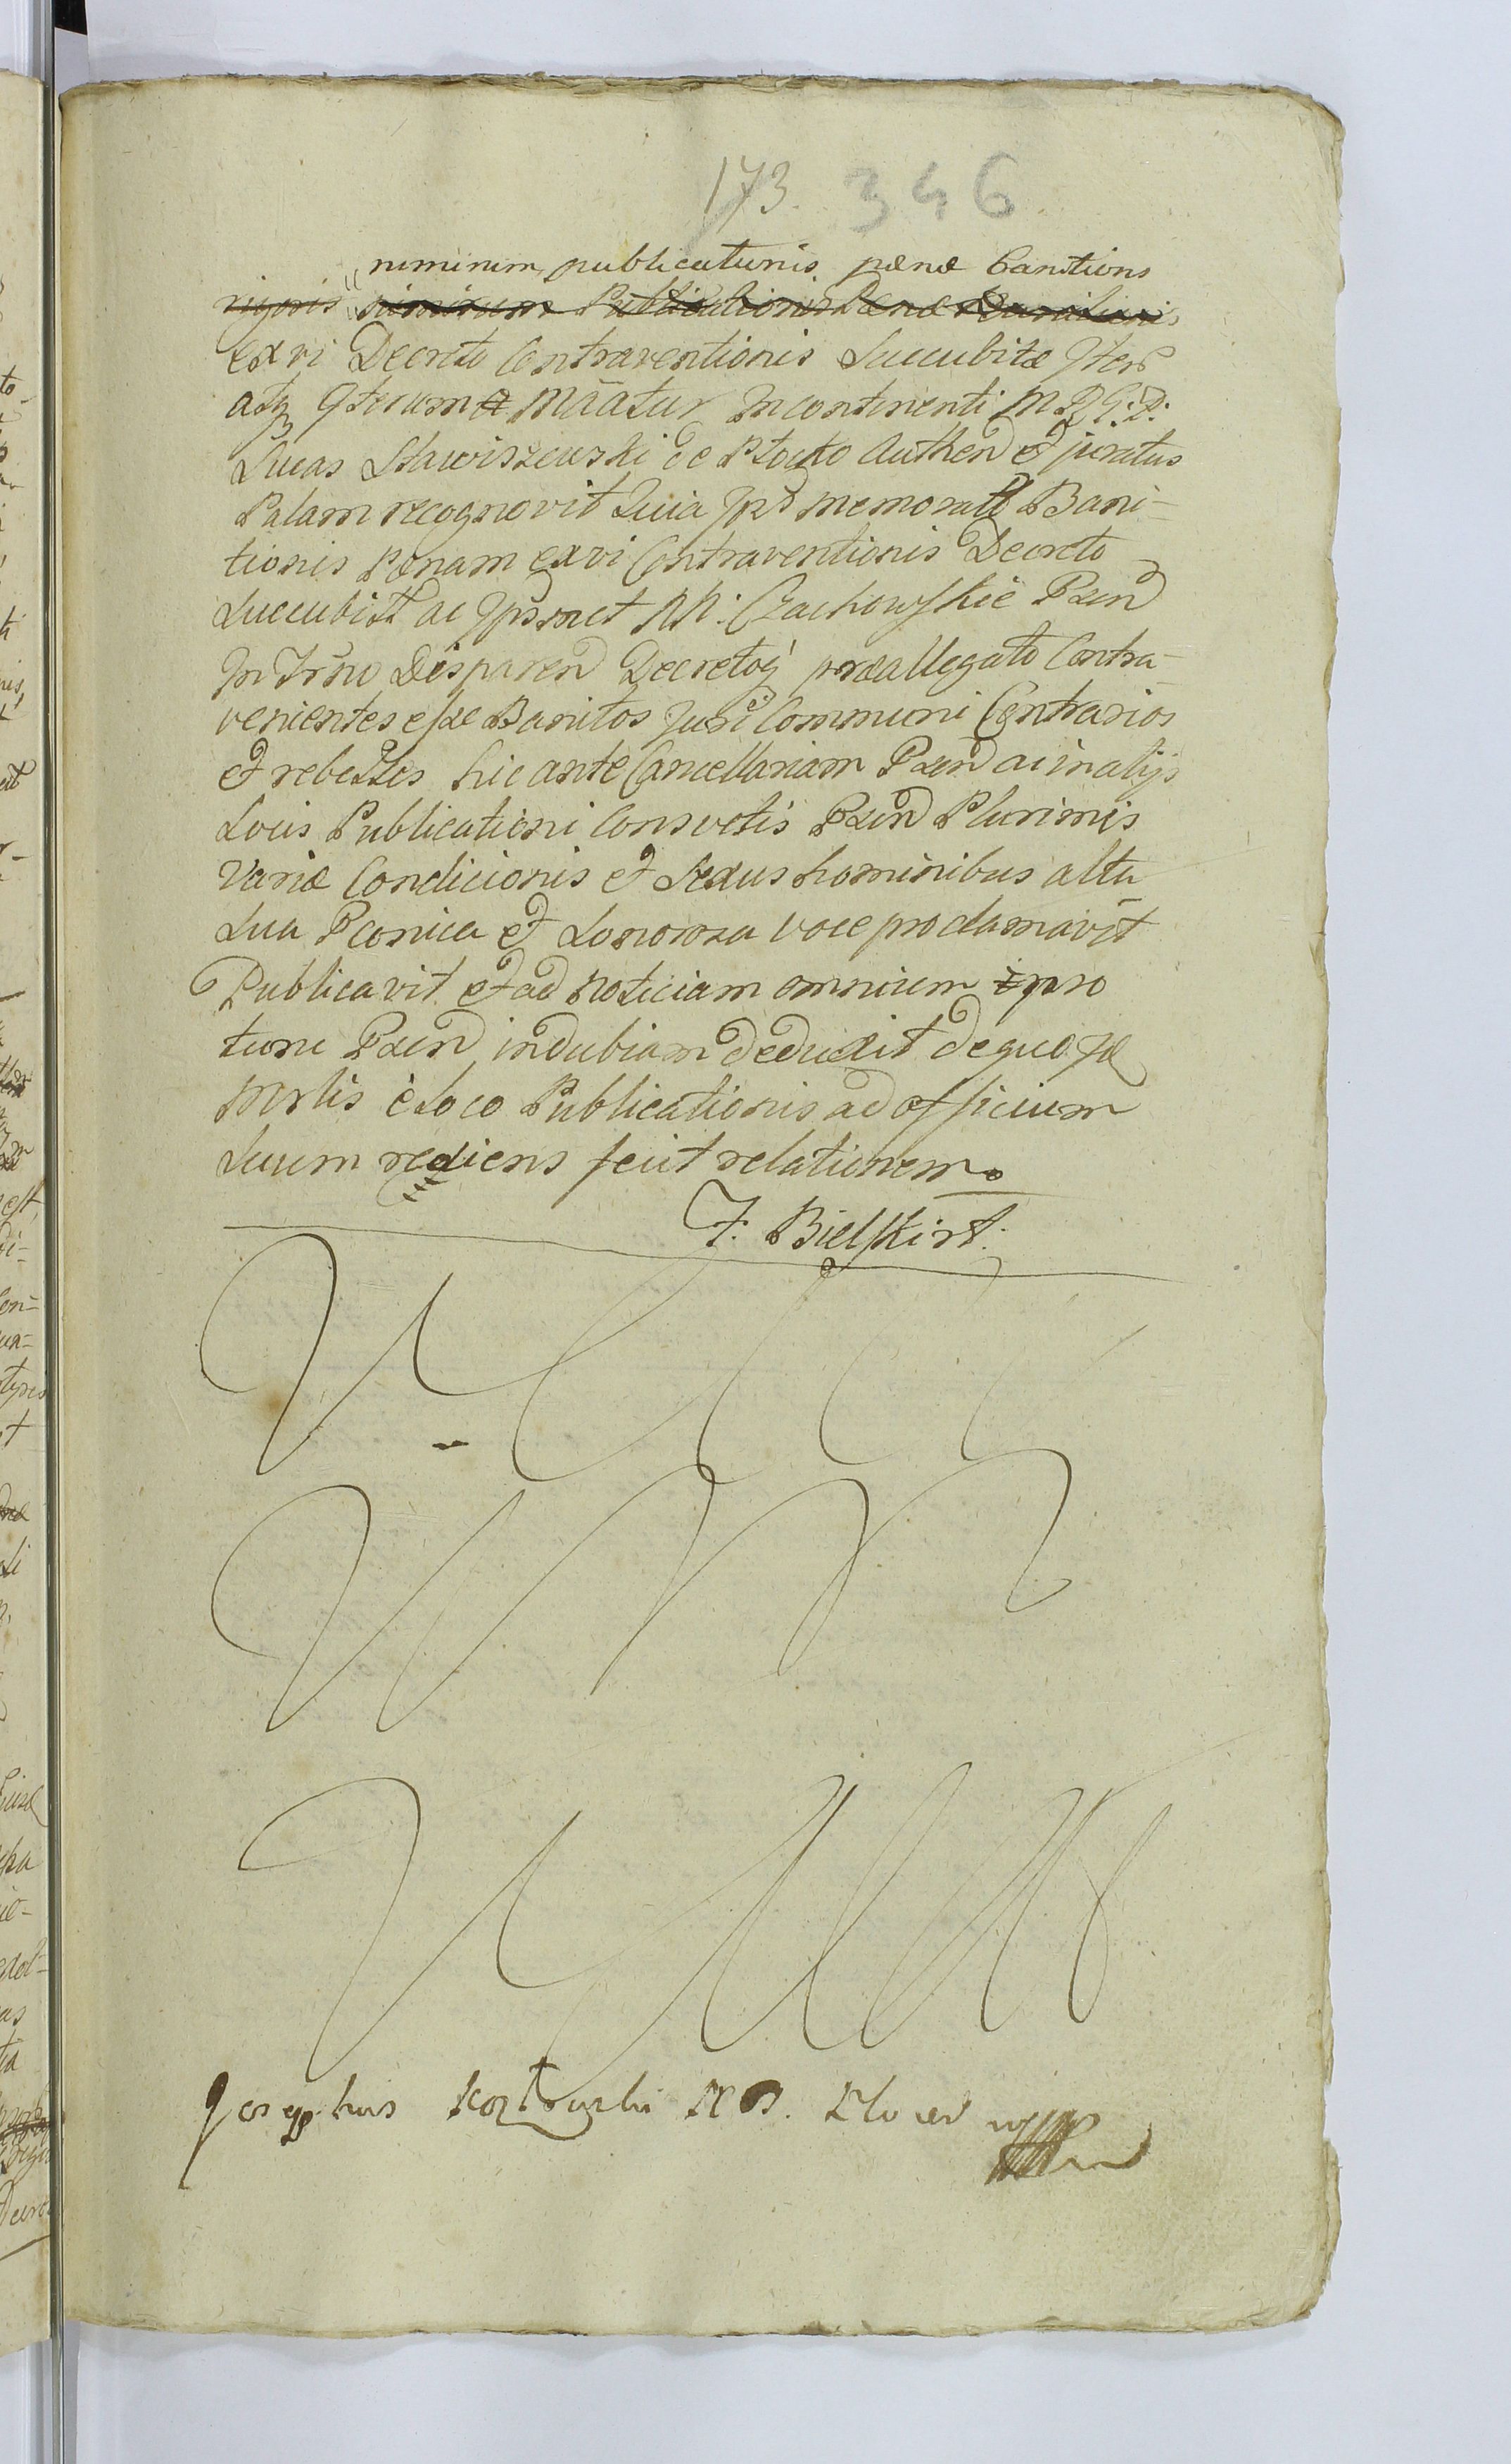 173. 346
niminim publicationis pænæ Banitions
rigoris nimirum Publicationis Pænæ Banitionis
ex vi Decreto Contraventionis Succubitæ
atq Iterum Mãatur In continenti M R G: P:
Lucas Sławiszewski de Płocko Authen et juratus
Palam recognovit Quia memorat Bani-
tionis Pænam ex vi Contraventionis Decreto
Succubit ac Ipsmet NN: Czachowskie Pæn
In Trno Disparen Decretoq præallegato Contra-
venientes esse Banitos Juri Communi Contrarios
et rebelles hic ante Cancellariam Pæn ac in alijs
Locis Publicationi Consvetis Pæn Plurimis
Variæ Condicionis et Sexus hominibus alta
Sua Pconica et Sonoroza voce proclamavit
Publicavit et ad Noticiam omnium ipso
tunc Pæn indubiam deduxit de quo
Mrlis è Loco Publicationis ad officium
Suum rediens fecit relationem.
J. Bielski rt.
Josephus